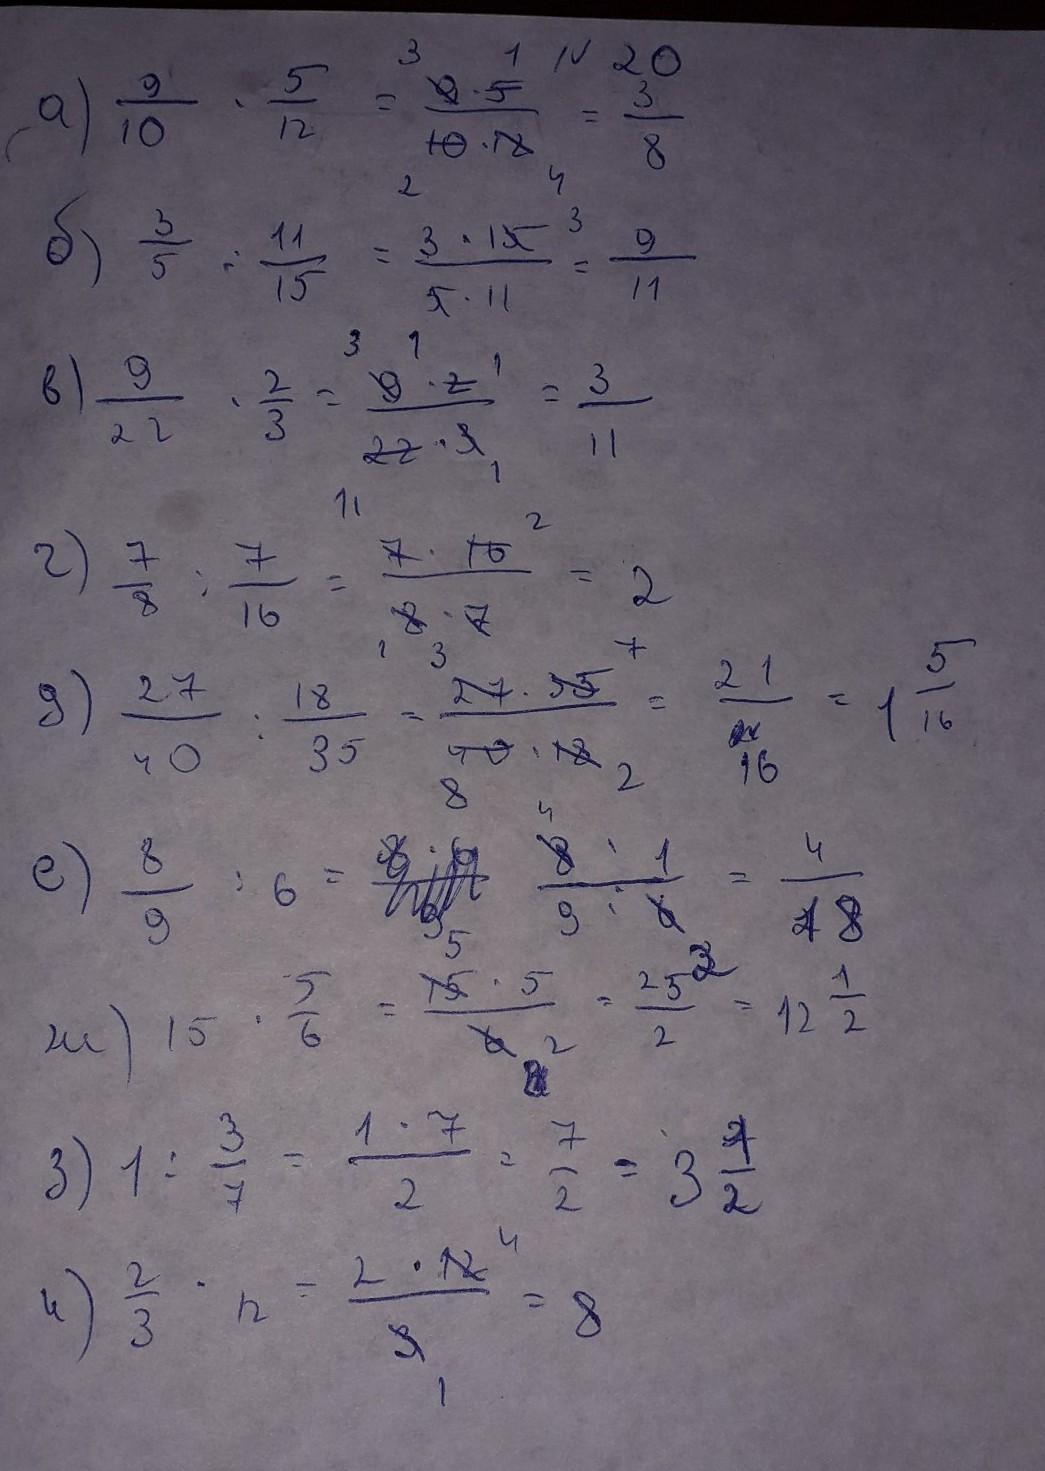 N 20
а) 9/10 · 5/12 = 9·5/10·12 = 3/8
б) 3/5 : 11/15 = 3·15/5·11 = 9/11
в) 9/22 · 2/3 = 9·2/22·3 = 3/11
г) 7/8 : 7/16 = 7·16/8·7 = 2
д) 27/40 : 18/35 = 27·35/40·18 = 21/16 = 1 5/16
е) 8/9 : 6 = 8:1/9:6 = 4/
ж) 15 · 5/6 = 15·5/6 = 25/2 = 12 1/2
з) 1 : 3/7 = 1·7/2 = 7/2 = 3 1/2
и) 2/3 · 12 = 2·12/3 = 8